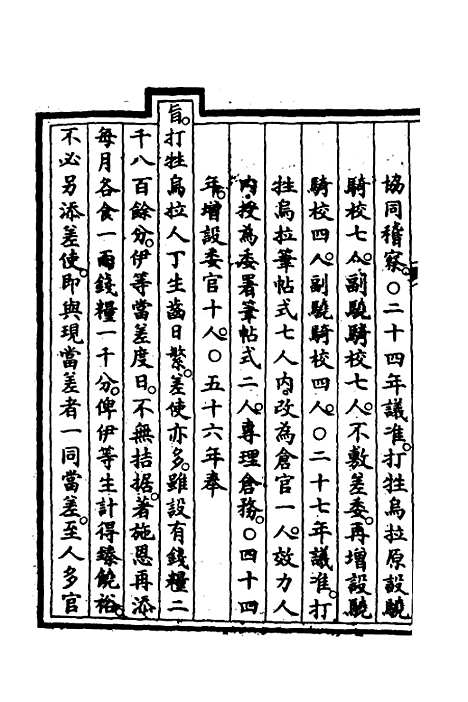 協同稽察。○二十四年議准。打牲烏拉原設驍
騎校七人。副驍騎校七人。不敷差委。再增設驍
騎校四人。副驍騎校四人。○二十七年議准。打
牲烏拉筆帖式七人內。改為倉官一人。效力人
內。授為委署筆帖式二人。專理倉務。○四十四
年。增設委官十人。○五十六年奉
旨。打牲烏拉人丁生齒日繁。差使亦多。雖設有錢糧二
千八百餘分。伊等當差度日。不無拮据。著施恩再添
每月各食一兩錢糧一千分。俾伊等生計得臻饒裕。
不必另添差使。即與現當差者一同當差。至人多官